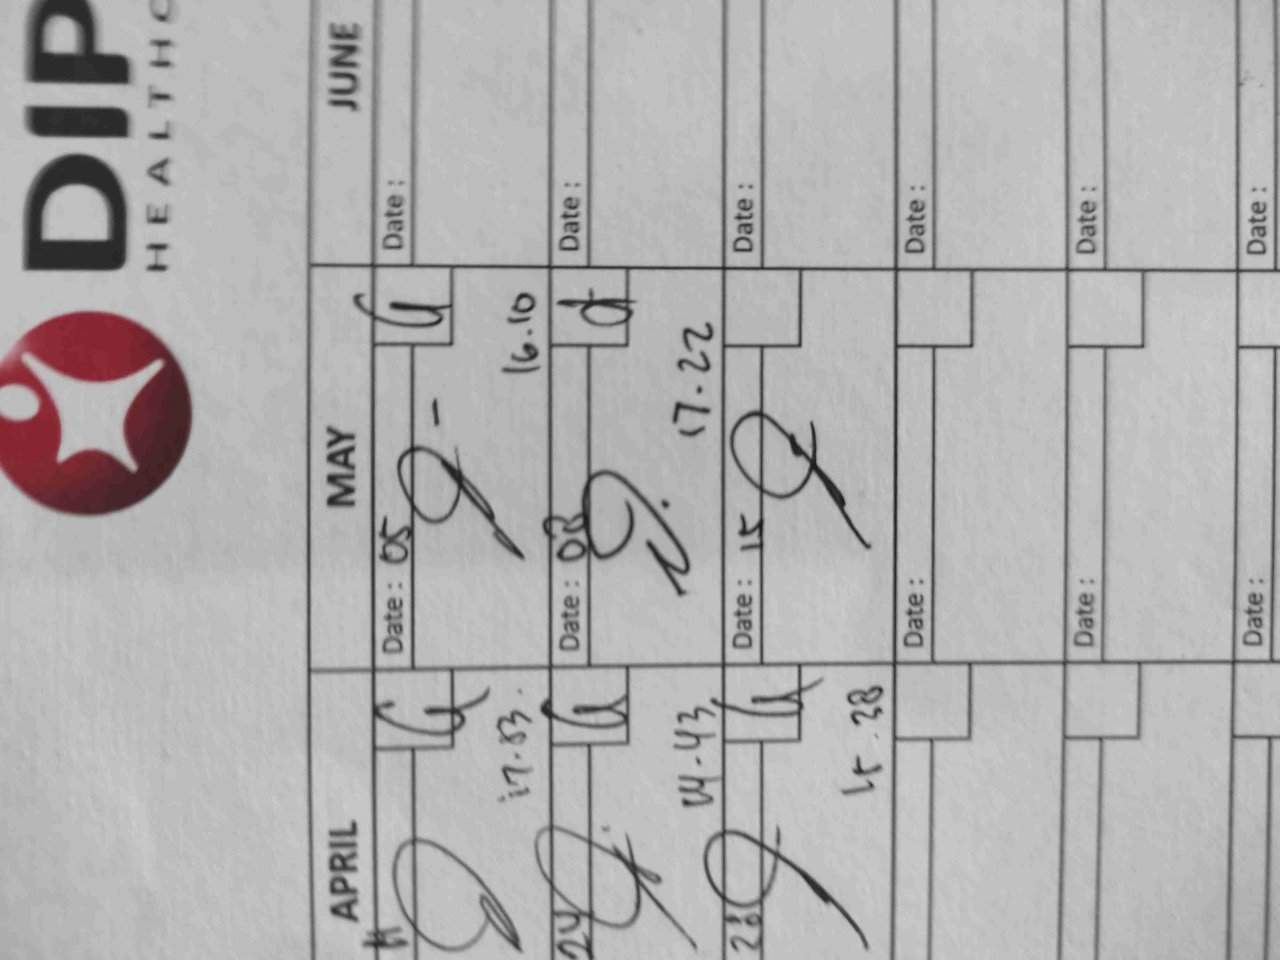 DIP
HEALTHC
APRIL MAY JUNE
Date : 05 Date :
17.03. 16.10
24 Date : 08 Date :
14-43, 17.22
28 Date : 15 Date :
15.38
Date : Date :
Date : Date :
Date : Date :